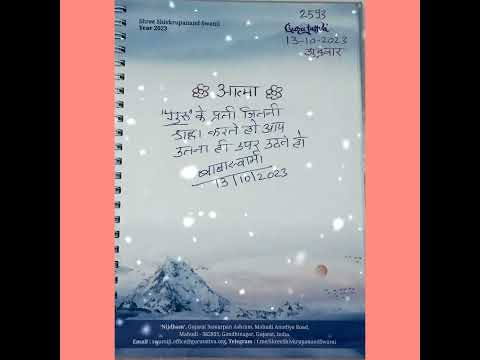 Shree Shivkrupanand Swami
Year 2023
2593
13-10-2023
शुक्रवार
आत्मा
"गुरू" के प्रती जितनी
श्रद्धा करते हो आप
उतना ही उपर उठते हो
बाबास्वामी
13/10/2023
'Nijdham', Gujarat Samarpan Ashram, Mahudi Amaliya Road,
Mahudi - 382855, Gandhinagar, Gujarat, India.
Email : swamiji.office@gurutattva.org, Telegram : t.me/ShreeShivkrupanandSwami